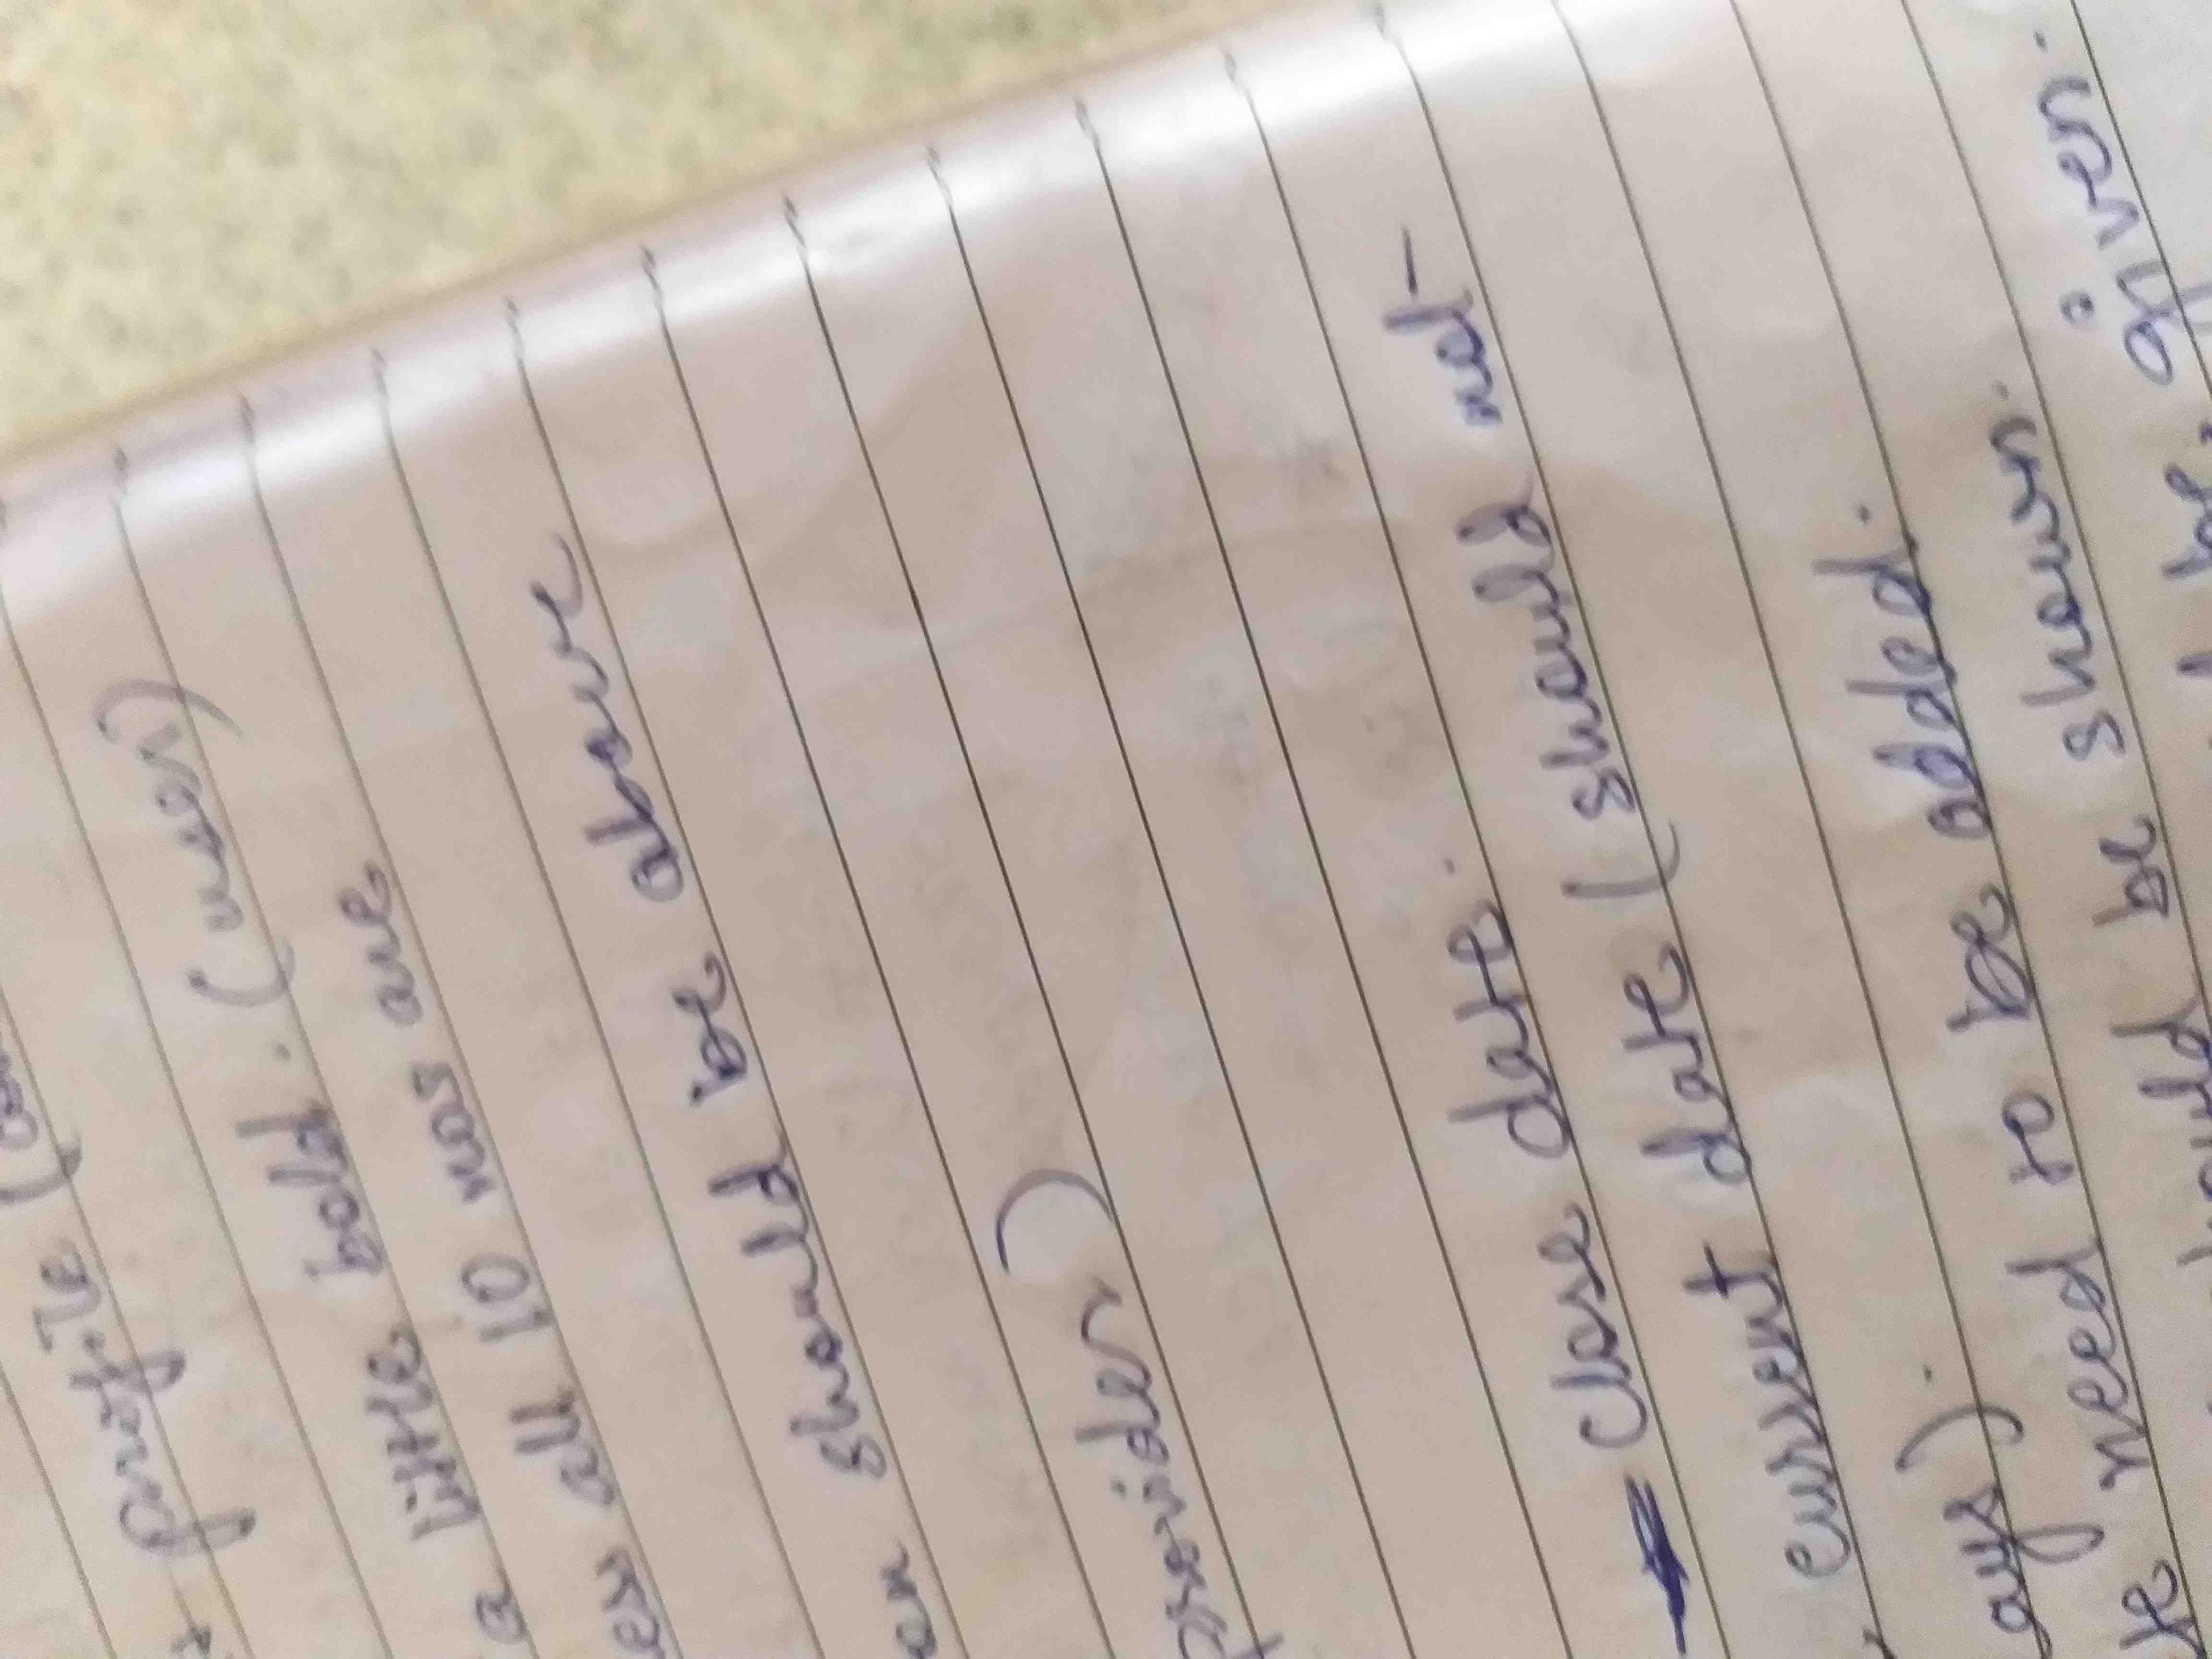 profile (
a little bold. (user)
all 10 nos are
should be above
provider)
close date.
current date (should not
ays).
need to be added.
should be shown.
be given.